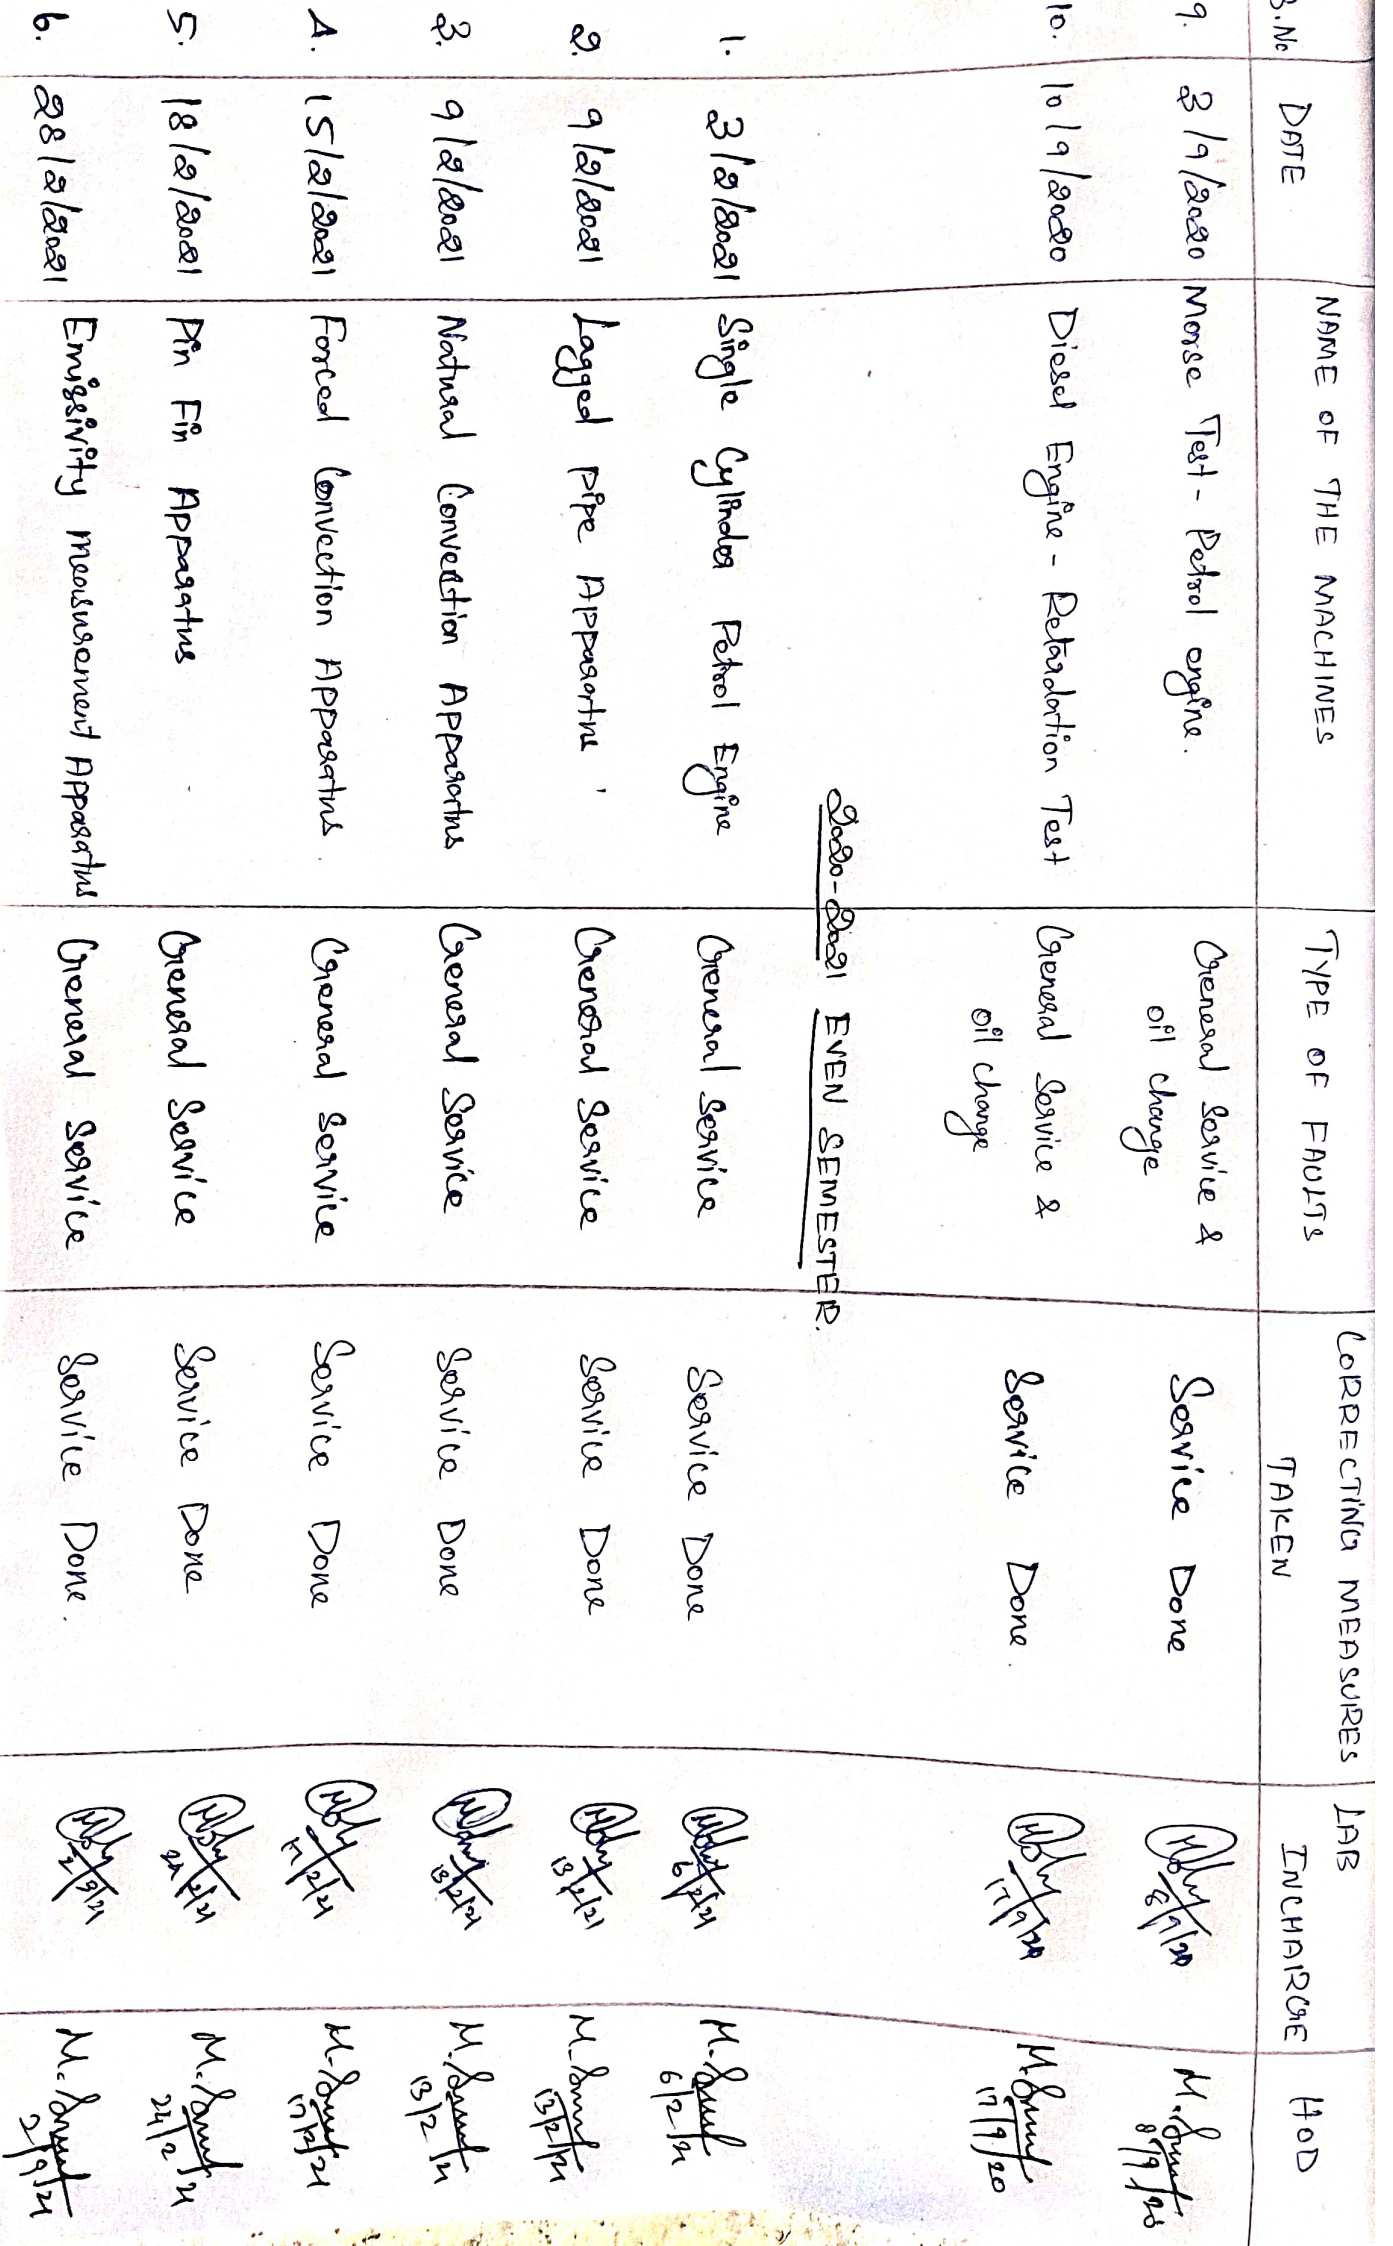 S.No DATE NAME OF THE MACHINES TYPE OF FAULTS CORRECTING MEASURES TAKEN LAB INCHARGE HOD
9. 3/9/2020 Morse Test - Petrol engine. General Service & oil change Service Done 8/9/20 8/9/20
10. 10/9/2020 Diesel Engine - Retardation Test General Service & oil change Service Done. 17/9/20 17/9/20
2020-2021 EVEN SEMESTER.
1. 3/2/2021 Single Cylinder Petrol Engine General Service Service Done 6/2/21 6/2/21
2. 9/2/2021 Lagged pipe Apparatus General Service Service Done 13/2/21 13/2/21
3. 9/2/2021 Natural Convection Apparatus General Service Service Done 13/2/21 13/2/21
4. 15/2/2021 Forced Convection Apparatus. General Service Service Done 17/2/21 17/2/21
5. 18/2/2021 Pin Fin Apparatus General Service Service Done 24/2/21 24/2/21
6. 28/2/2021 Emissivity measurement Apparatus General Service Service Done. 2/9/21